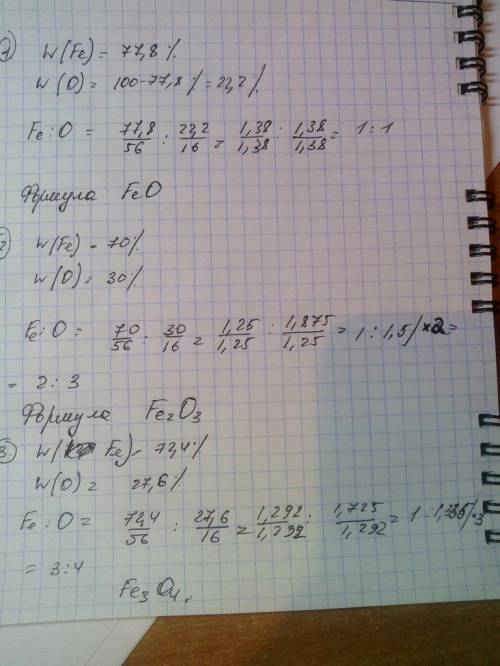 1) W(Fe) = 77,8%
W(O) = 100-77,8% = 22,2%
Fe:O = 77,8/56 : 22,2/16 = 1,38/1,38 : 1,38/1,38 = 1:1
Формула FeO
2 W(Fe) = 70%
W(O) = 30%
Fe:O = 70/56 : 30/16 = 1,25/1,25 : 1,875/1,25 = 1:1,5/×2=
= 2:3
Формула Fe₂O₃
3. W(Fe) = 72,4%
W(O) = 27,6%
Fe:O = 72,4/56 : 27,6/16 = 1,292/1,292 : 1,725/1,292 = 1:
= 3:4
Fe₃O₄.